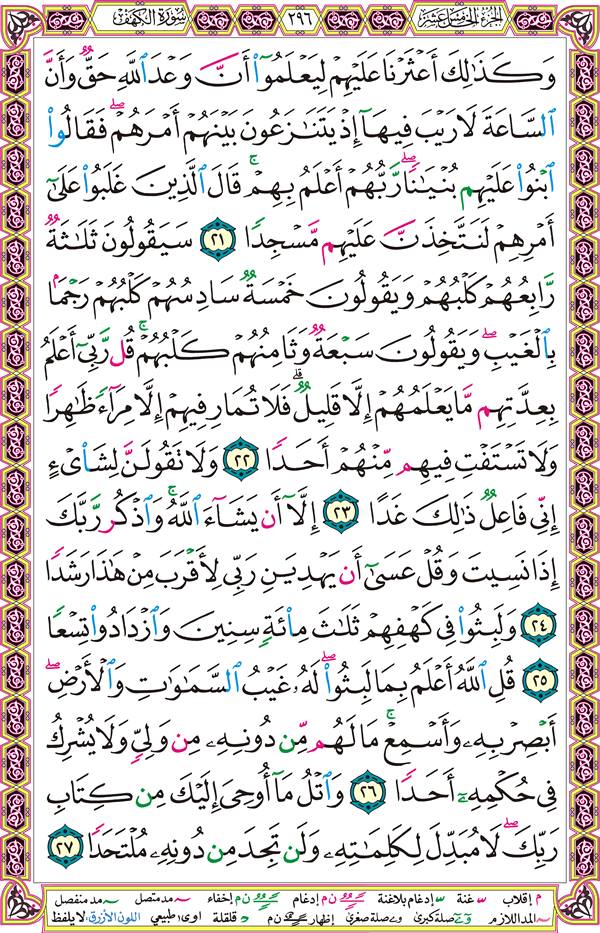 الجزء الخامس عشر ٢٩٦ سورة الكهف
وَكَذَٰلِكَ أَعْثَرْنَا عَلَيْهِمْ لِيَعْلَمُوٓا۟ أَنَّ وَعْدَ ٱللَّهِ حَقٌّ وَأَنَّ
ٱلسَّاعَةَ لَا رَيْبَ فِيهَآ إِذْ يَتَنَٰزَعُونَ بَيْنَهُمْ أَمْرَهُمْ ۖ فَقَالُوا۟
ٱبْنُوا۟ عَلَيْهِم بُنْيَٰنًا ۖ رَّبُّهُمْ أَعْلَمُ بِهِمْ ۚ قَالَ ٱلَّذِينَ غَلَبُوا۟ عَلَىٰٓ
أَمْرِهِمْ لَنَتَّخِذَنَّ عَلَيْهِم مَّسْجِدًا ٢١ سَيَقُولُونَ ثَلَٰثَةٌ
رَّابِعُهُمْ كَلْبُهُمْ وَيَقُولُونَ خَمْسَةٌ سَادِسُهُمْ كَلْبُهُمْ رَجْمًۢا
بِٱلْغَيْبِ ۖ وَيَقُولُونَ سَبْعَةٌ وَثَامِنُهُمْ كَلْبُهُمْ ۚ قُل رَّبِّىٓ أَعْلَمُ
بِعِدَّتِهِم مَّا يَعْلَمُهُمْ إِلَّا قَلِيلٌ ۗ فَلَا تُمَارِ فِيهِمْ إِلَّا مِرَآءً ظَٰهِرًا
وَلَا تَسْتَفْتِ فِيهِم مِّنْهُمْ أَحَدًا ٢٢ وَلَا تَقُولَنَّ لِشَا۟ىْءٍ
إِنِّى فَاعِلٌ ذَٰلِكَ غَدًا ٢٣ إِلَّآ أَن يَشَآءَ ٱللَّهُ ۚ وَٱذْكُر رَّبَّكَ
إِذَا نَسِيتَ وَقُلْ عَسَىٰٓ أَن يَهْدِيَنِ رَبِّى لِأَقْرَبَ مِنْ هَٰذَا رَشَدًا
٢٤ وَلَبِثُوا۟ فِى كَهْفِهِمْ ثَلَٰثَ مِا۟ئَةٍ سِنِينَ وَٱزْدَادُوا۟ تِسْعًا
٢٥ قُلِ ٱللَّهُ أَعْلَمُ بِمَا لَبِثُوا۟ ۖ لَهُۥ غَيْبُ ٱلسَّمَٰوَٰتِ وَٱلْأَرْضِ ۖ
أَبْصِرْ بِهِۦ وَأَسْمِعْ ۚ مَا لَهُم مِّن دُونِهِۦ مِن وَلِىٍّ وَلَا يُشْرِكُ
فِى حُكْمِهِۦٓ أَحَدًا ٢٦ وَٱتْلُ مَآ أُوحِىَ إِلَيْكَ مِن كِتَابِ
رَبِّكَ ۖ لَا مُبَدِّلَ لِكَلِمَٰتِهِۦ وَلَن تَجِدَ مِن دُونِهِۦ مُلْتَحَدًا ٢٧
م إقلاب غنة إدغام بلاغنة ن م إدغام ن م إخفاء مد متصل مد منفصل
المد اللازم صلة كبرى صلة صغرى إظهار ن م قلقلة اوى طبيعي اللون الأزرق: لا يلفظ